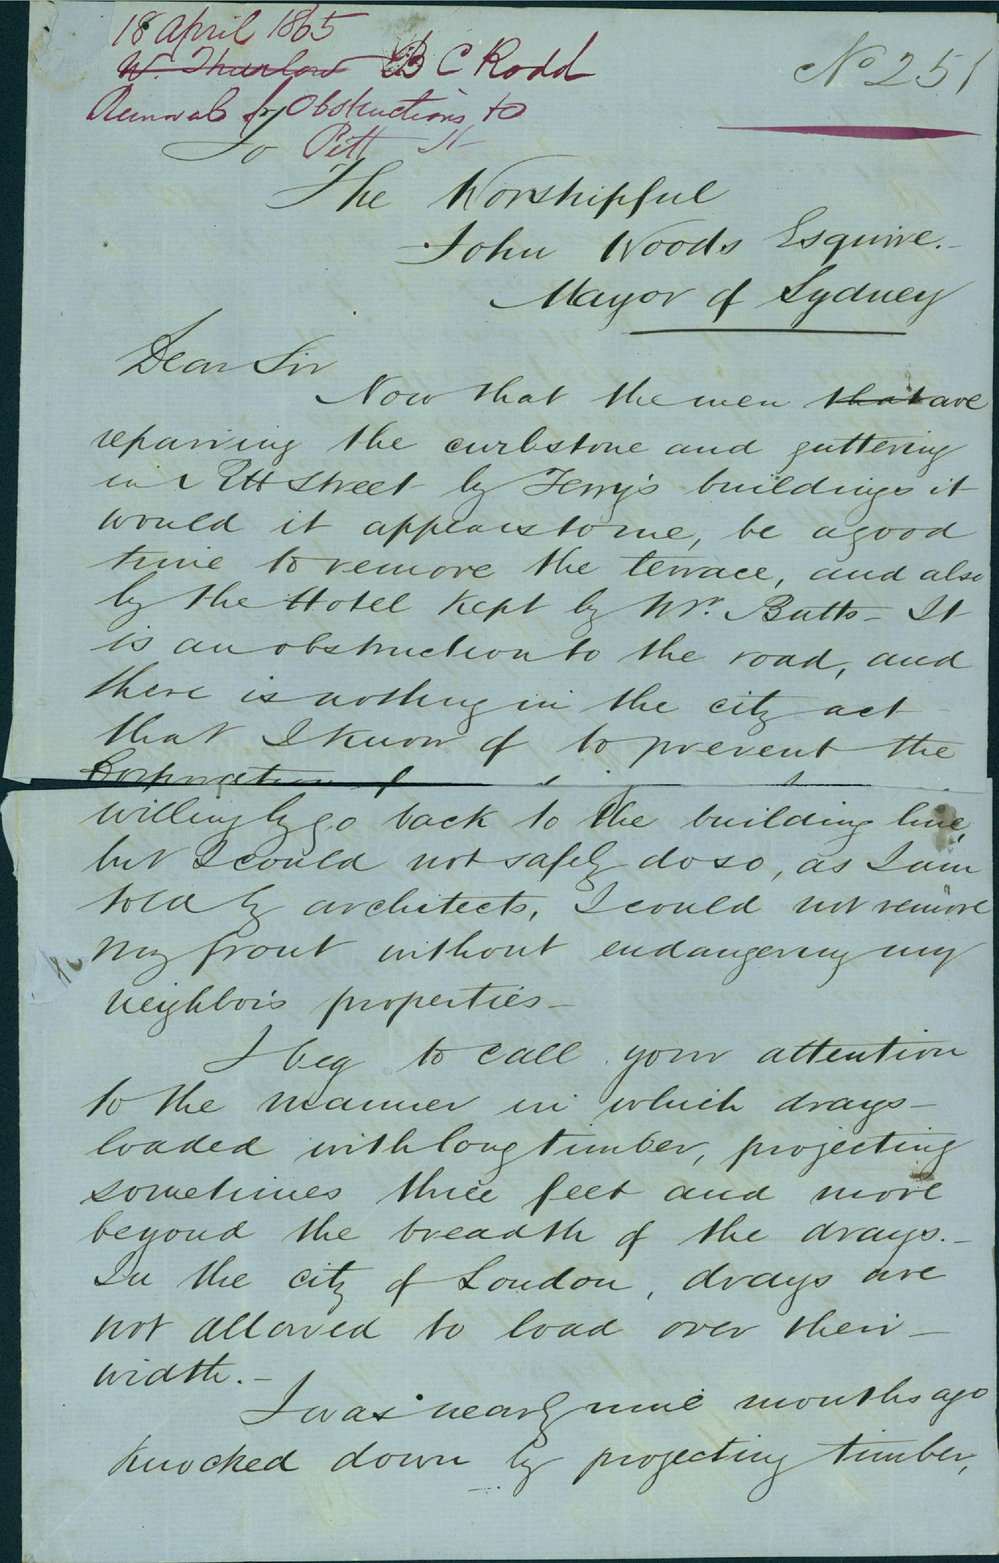 18 April 1865
W. Thurlow B C Rodd
Removal of Obstructions to
Pitt St
No 251
To
The Worshipful
John Woods Esquire.
Mayor of Sydney
Dear Sir
Now that the men that are
repairing the curbstone and guttering
in Pitt Street by Terry's buildings it
would it appears to me, be a good
time to remove the terrace, and also
by the Hotel kept by Mr. Butts - It
is an obstruction to the road, and
there is nothing in the city act
that I know of to prevent the
Corporation
willingly go back to the building line,
but I could not safely do so, as I am
told by architects, I could not remove
my front without endangering my
neighbors properties -
I beg to call your attention
to the manner in which drays -
loaded with long timber, projecting
sometimes three feet and more
beyond the breadth of the drays. -
In the city of London, drays are
not allowed to load over their -
width. -
I was nearly nine months ago
knocked down by projecting timber,